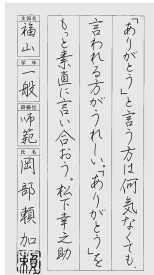 「ありがとう」と言う方は何気なくても、
言われる方がうれしい、「ありがとう」を
もっと素直に言い合おう。松下幸之助
支部名 福山 学年 一般 段級位 師範 氏名 岡部頼加